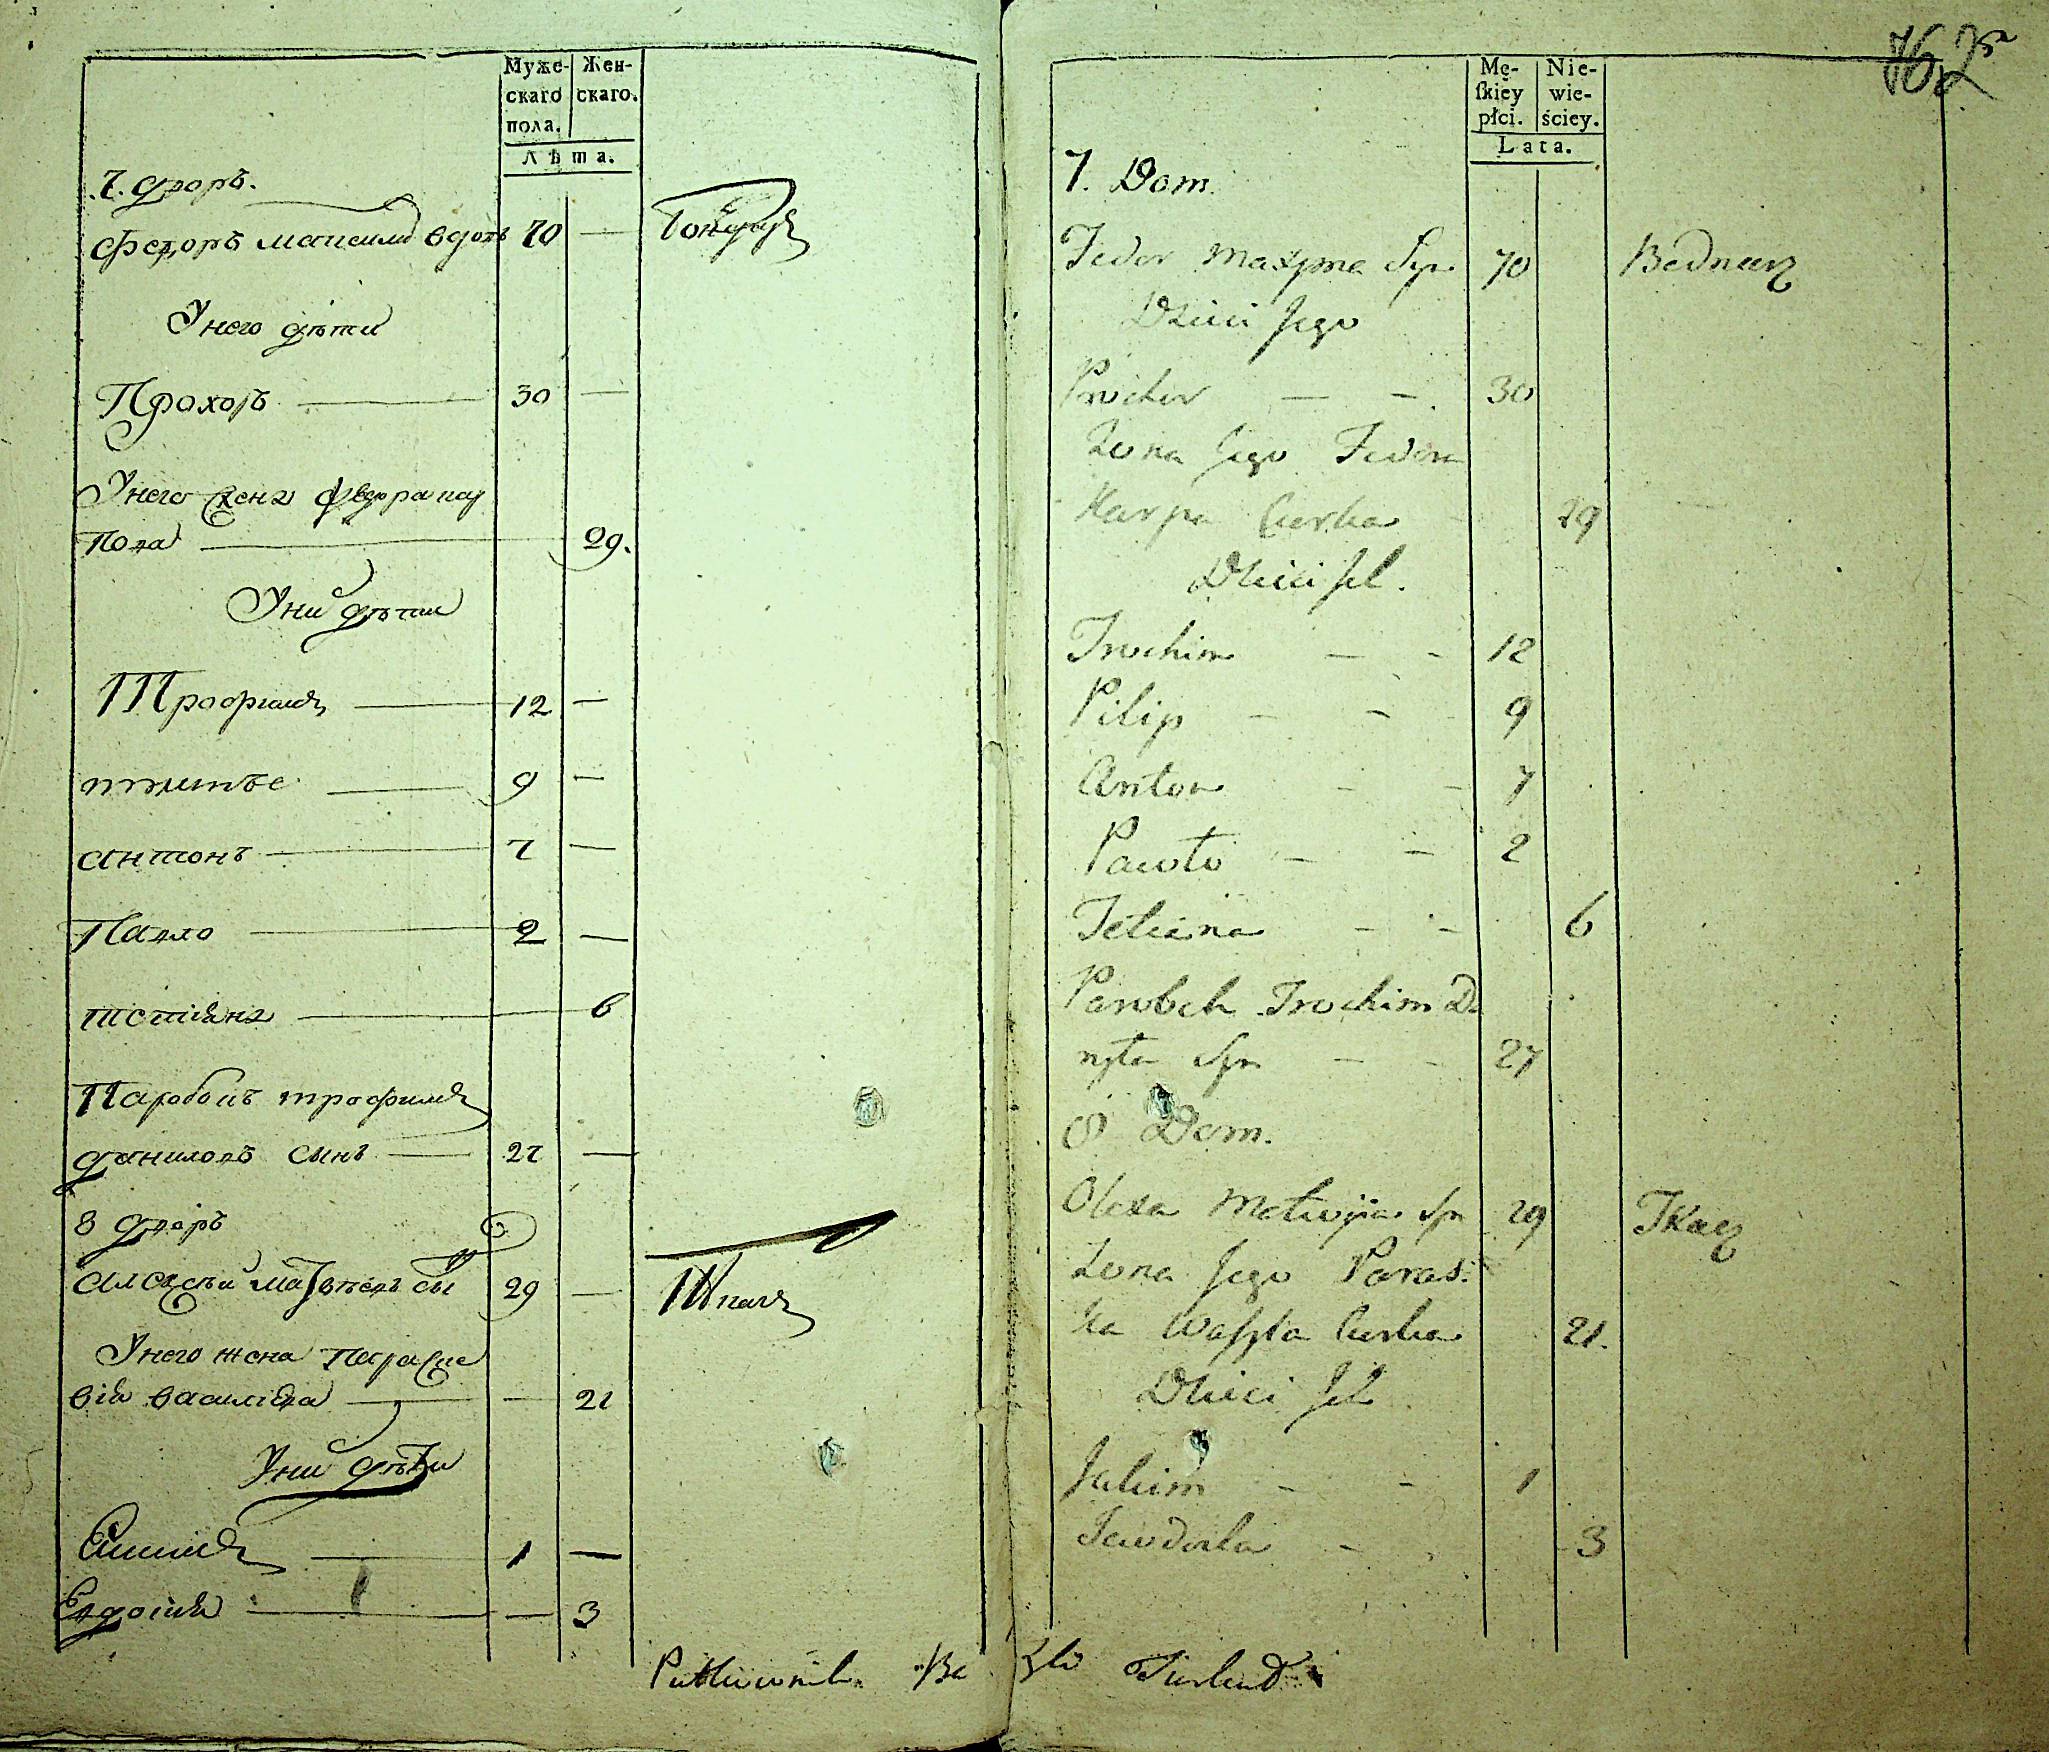 Муже-
скаго
пола.
Жен-
скаго.
Лѣта.
7. дворъ.
Федоръ Максимо вдовъ 70 — Бондарь
У него дѣти
Прохоръ — 30 —
У него жена Федора кар
пова — 29.
У ни дѣти
Трофимъ — 12 —
9 —
антонъ — 7 —
Павло — 2 —
тетіана — 6
Паробокъ трофимъ
даниловъ сынъ — 27 —
8 дворъ
алексѣй матвѣевъ сы 29 — Ткачъ
У него жена Параске
вія василіева — — 21
У ни дѣти
1 —
Евдокія — — 3
162
Mę-
skiey
płci.
Nie-
wie-
ściey.
Lata.
7. Dom.
Fedor Maxyma Syn 70 Bednarz
Dzieci Jego
Prochor — — 30
Żona Jego Fedora
Karpa Curka 29
Dzieci Ich.
Trochim — — 12
Pilip — — 9
Anton — — 7
Pawło — — 2
Tetiana — — 6
Parobek Trochim Da
nyła Syn — — 27
8 Dom.
Olexa Matwija Syn 29 Tkacz
Żona Jego Paras:
ka Wasyla Curka 21.
Dzieci Ich
Jakim — — 1
Jewdoka — 3